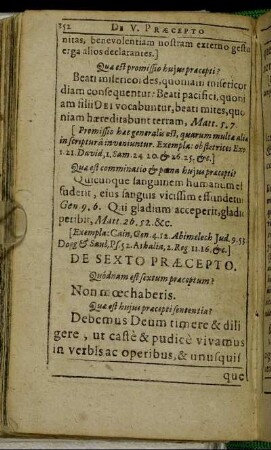 152 DE V. PRÆCEPTO
nitas, benevolentiam nostram externo gestu
erga alios declarantes.]
Quæ est promissio hujus præcepti?
Beati misericordes, quoniam misericor
diam consequentur: Beati pacifici, quoni
am filii DEI vocabuntur, beati mites, quo
niam hæreditabunt terram, Matt. 5. 7.
[Promissio hæc generalis est, quarum multæ aliæ
in scriptura inveniuntur. Exempla: obstetrices Ex
1. 21. David, 1. Sam. 24. 20. & 26. 25. &c.]
Quæ est comminatio & pœna hujus præcepti?
Quicunque sanguinem humanum ef
fuderit, ejus sanguis vicissim effundetur
Gen 9. 6. Qui gladium acceperit, gladi
peribit, Matt. 26. 52. &c.
[Exempla: Cain, Gen. 4. 12. Abimelech Jud. 9. 53.
Doeg & Saul, Ps. 52. Athalia, 2. Reg 11. 16. &c.]
DE SEXTO PRÆCEPTO.
Quodnam est sextum præceptum?
Non mœchaberis.
Quæ est hujus præcepti sententia?
Debemus Deum timere & dili
gere, ut castè & pudicè vivamus
in verbis ac operibus, & unusquis
que